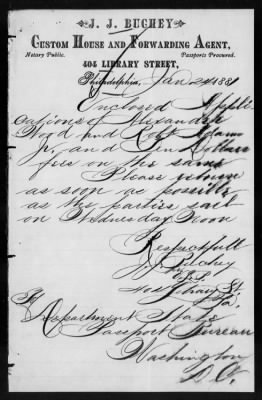 J. J. BUCHEY
CUSTOM HOUSE AND FORWARDING AGENT,
Notary Public. Passports Procured.
404 LIBRARY STREET,
Philadelphia, Jan 24 1881
Enclosed Appli
cations of Alexander
Wood and Robt Adams
Jr. and Ten Dollars
fees on the same
Please return
as soon as possible
as the parties sail
on Wednesday Noon
Respectfull
J J Buchey
404 Library St
Pa.
To
Department State
Passport Bureau
Washington
D.C.